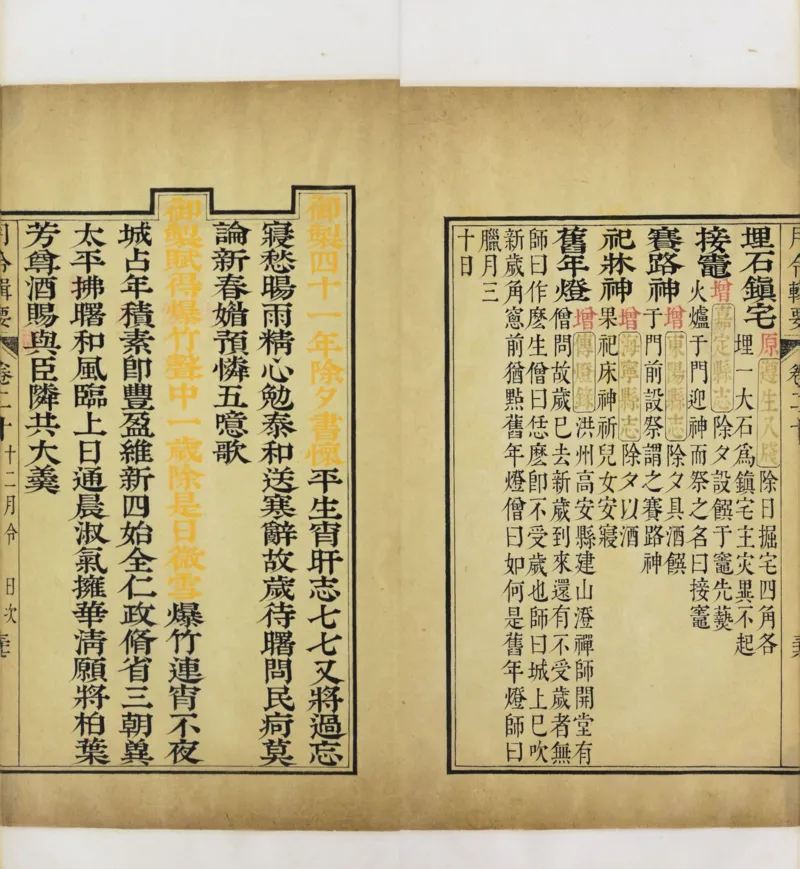 月令輯要 卷二十
埋石鎮宅 原 遵生八牋 除日掘宅四角各
埋一大石爲鎮宅主灾異不起
接竈 增 嘉定縣志 除夕設饌于竈先爇
火爐于門迎神而祭之名曰接竈
賽路神 增 東陽縣志 除夕具酒饌
于門前設祭謂之賽路神
祀牀神 增 海寧縣志 除夕以酒
果祀床神祈兒女安寢
舊年燈 增 傳燈錄 洪州高安縣建山澄禪師開堂有
僧問故歲已去新歲到來還有不受歲者無
師曰作麽生僧曰恁麽即不受歲也師曰城上已吹
新歲角窻前猶㸃舊年燈僧曰如何是舊年燈師曰
臘月三
十日
御製四十一年除夕書懷 平生宵旰志七七又將過忘
寢愁暘雨精心勉泰和送寒辭故歲待曙問民痾莫
論新春媚預憐五噫歌
御製賦得爆竹聲中一歲除是日微雪 爆竹連宵不夜
城占年積素即豐盈維新四始全仁政脩省三朝兾
太平拂曙和風臨上日通晨淑氣擁華淸願將柏葉
芳尊酒賜與臣隣共大羹
月令輯要 卷二十 十二月令 日次